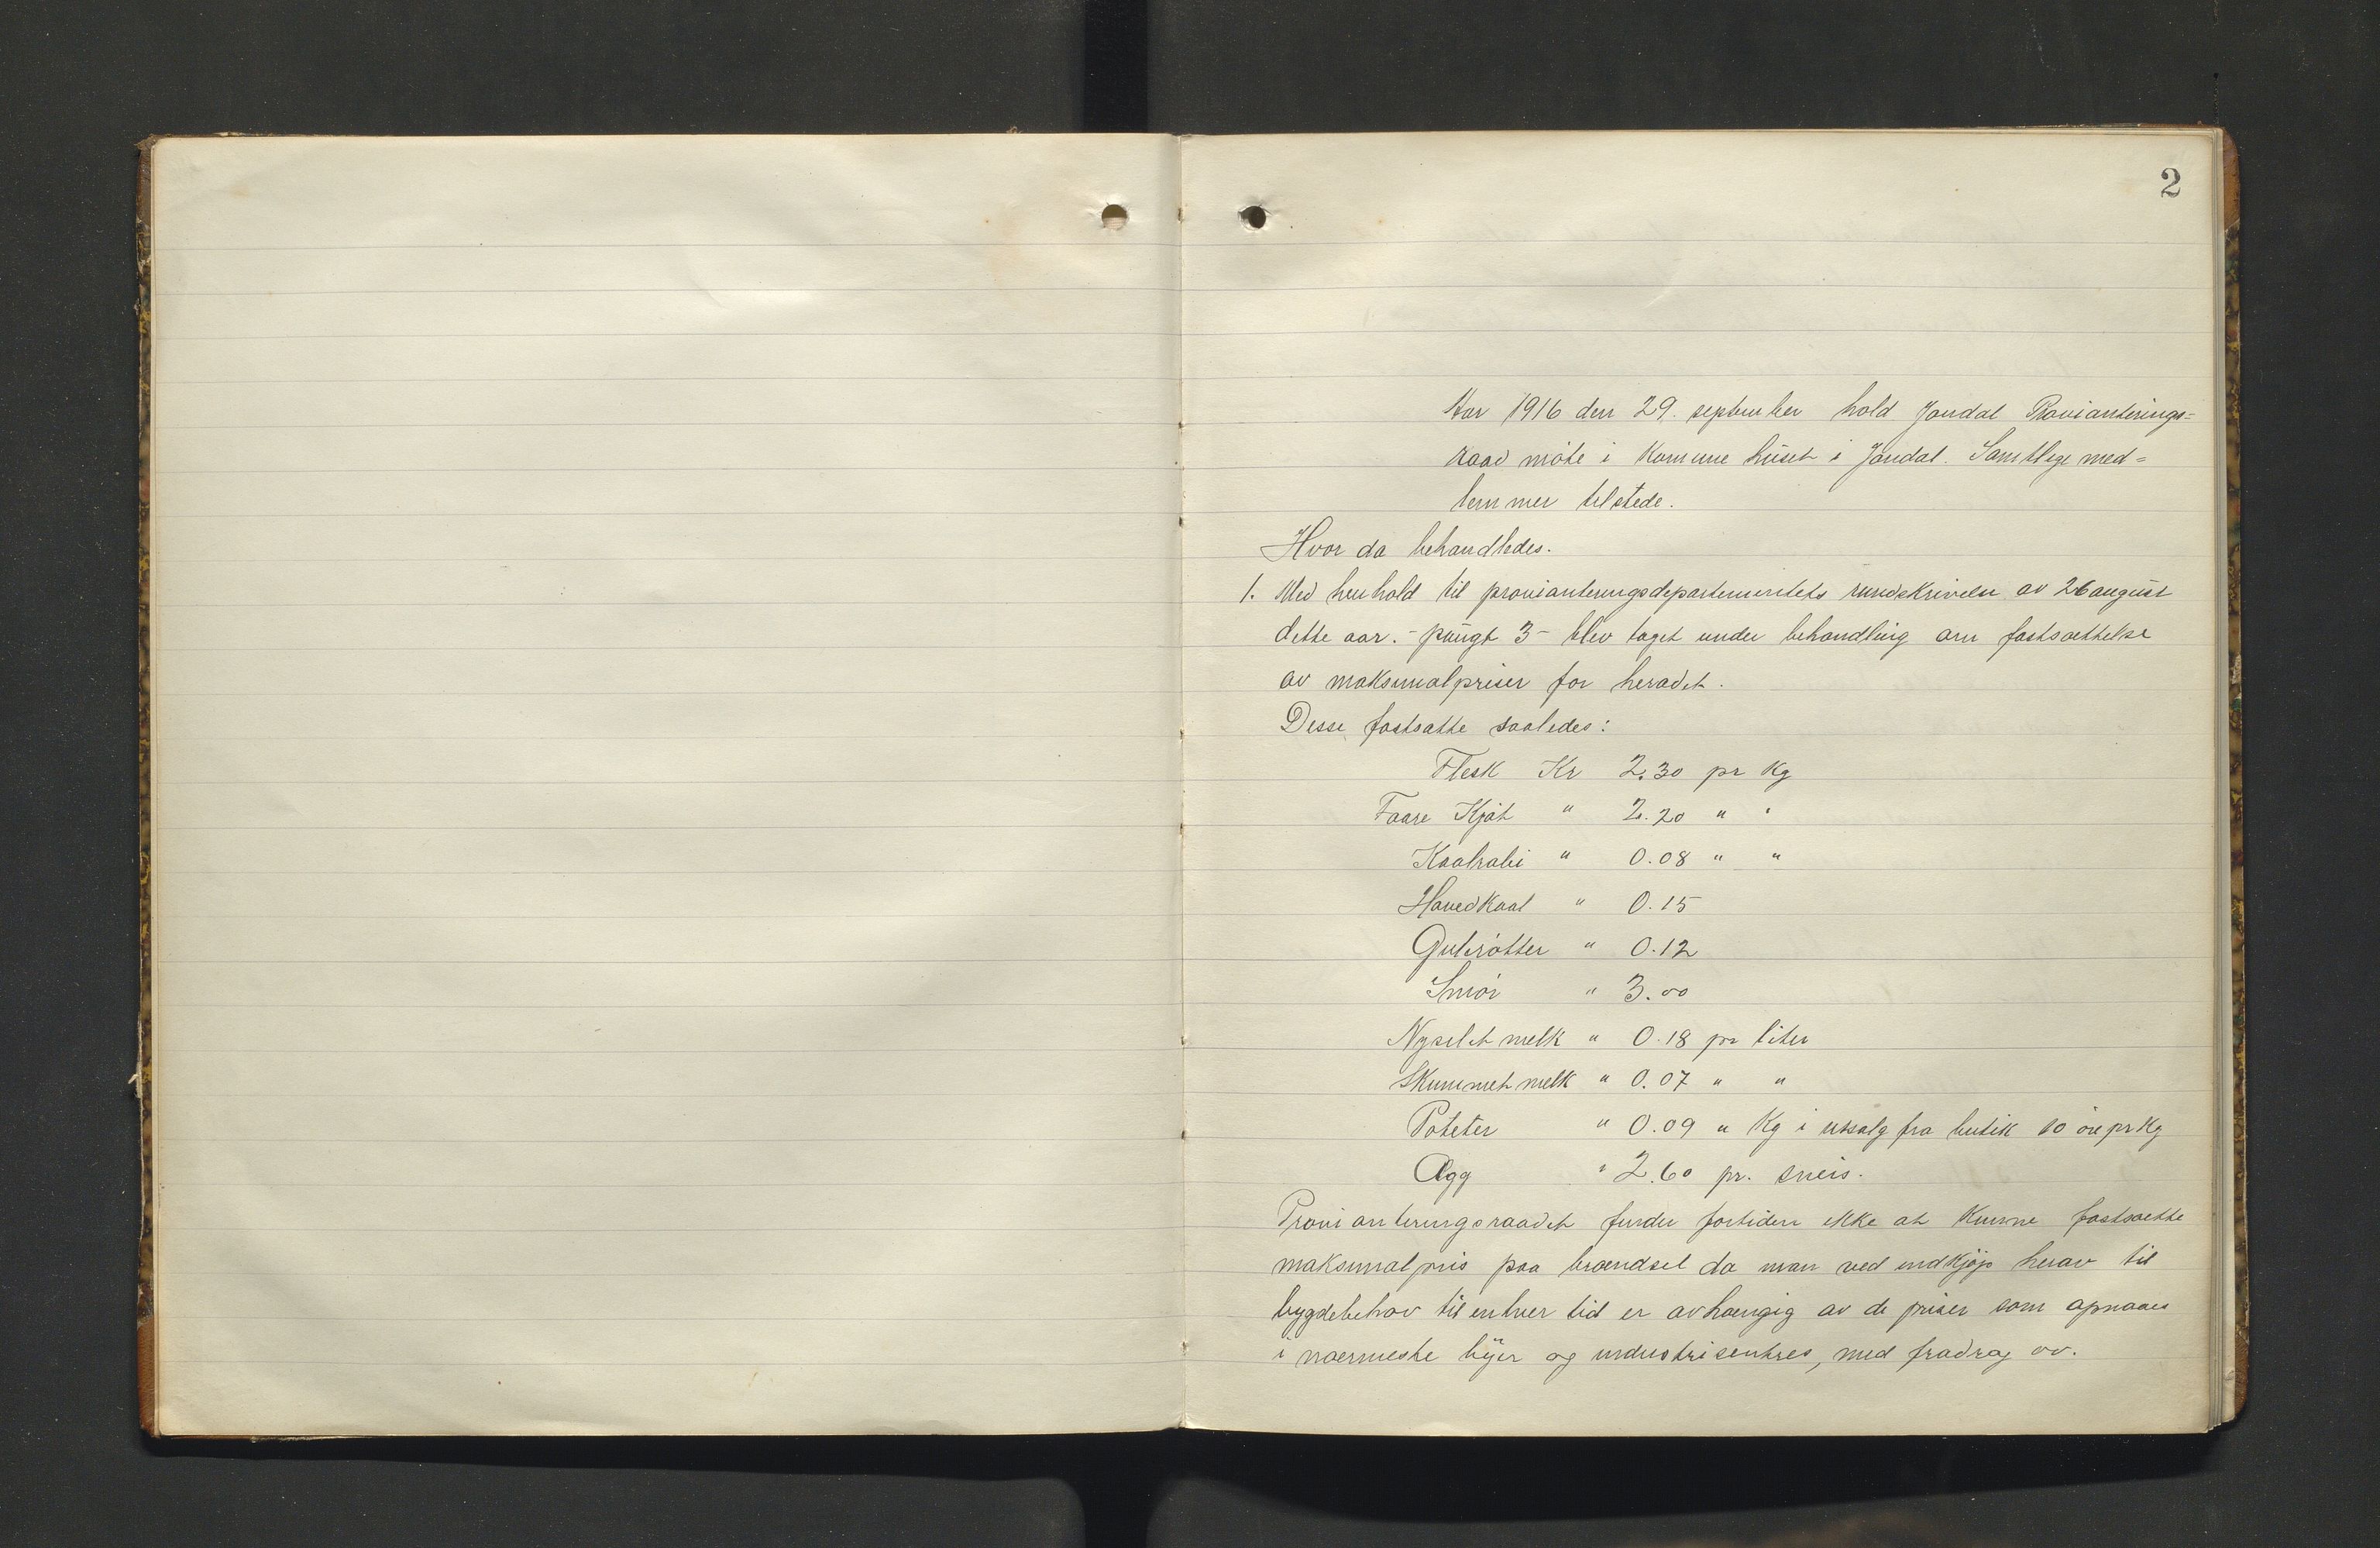 2
Aar 1916 den 29. september hold Jondal Provianterings=
raad möte i Kommune huset i Jondal. Samtlige med=
lemmer tilstede.
Hvor da behandledes.
1. Med henhold til provianteringsdepartementets rundskrivelse av 26 august
dette aar. - pungt 3 - blev taget under behandling om fastsættelse
av maksimalpriser for heradet.
Desse fastsatte saaledes:
Flesk Kr 2.30 pr Kg
Faare Kjöt " 2.20 " "
Kaalrabi " 0.08 " "
Hovedkaal " 0.15
Gulerötter " 0.12
Smör " 3.00
Nysilet melk " 0.18 pr liter
Skummet melk " 0.07 " "
Poteter " 0.09 " Kg i utsalg fra butik 10 öre pr Kg
Ægg " 2.60 pr. sneis.
Provianteringsraadet finder fortiden ikke at kunne fastsætte
maksimalpris paa brændsel da man ved indkjöp herav til
bygdebehov til enhver tid er avhængig av de priser som opnaaes
i nærmeste byer og industrisentres, med fradrag av.